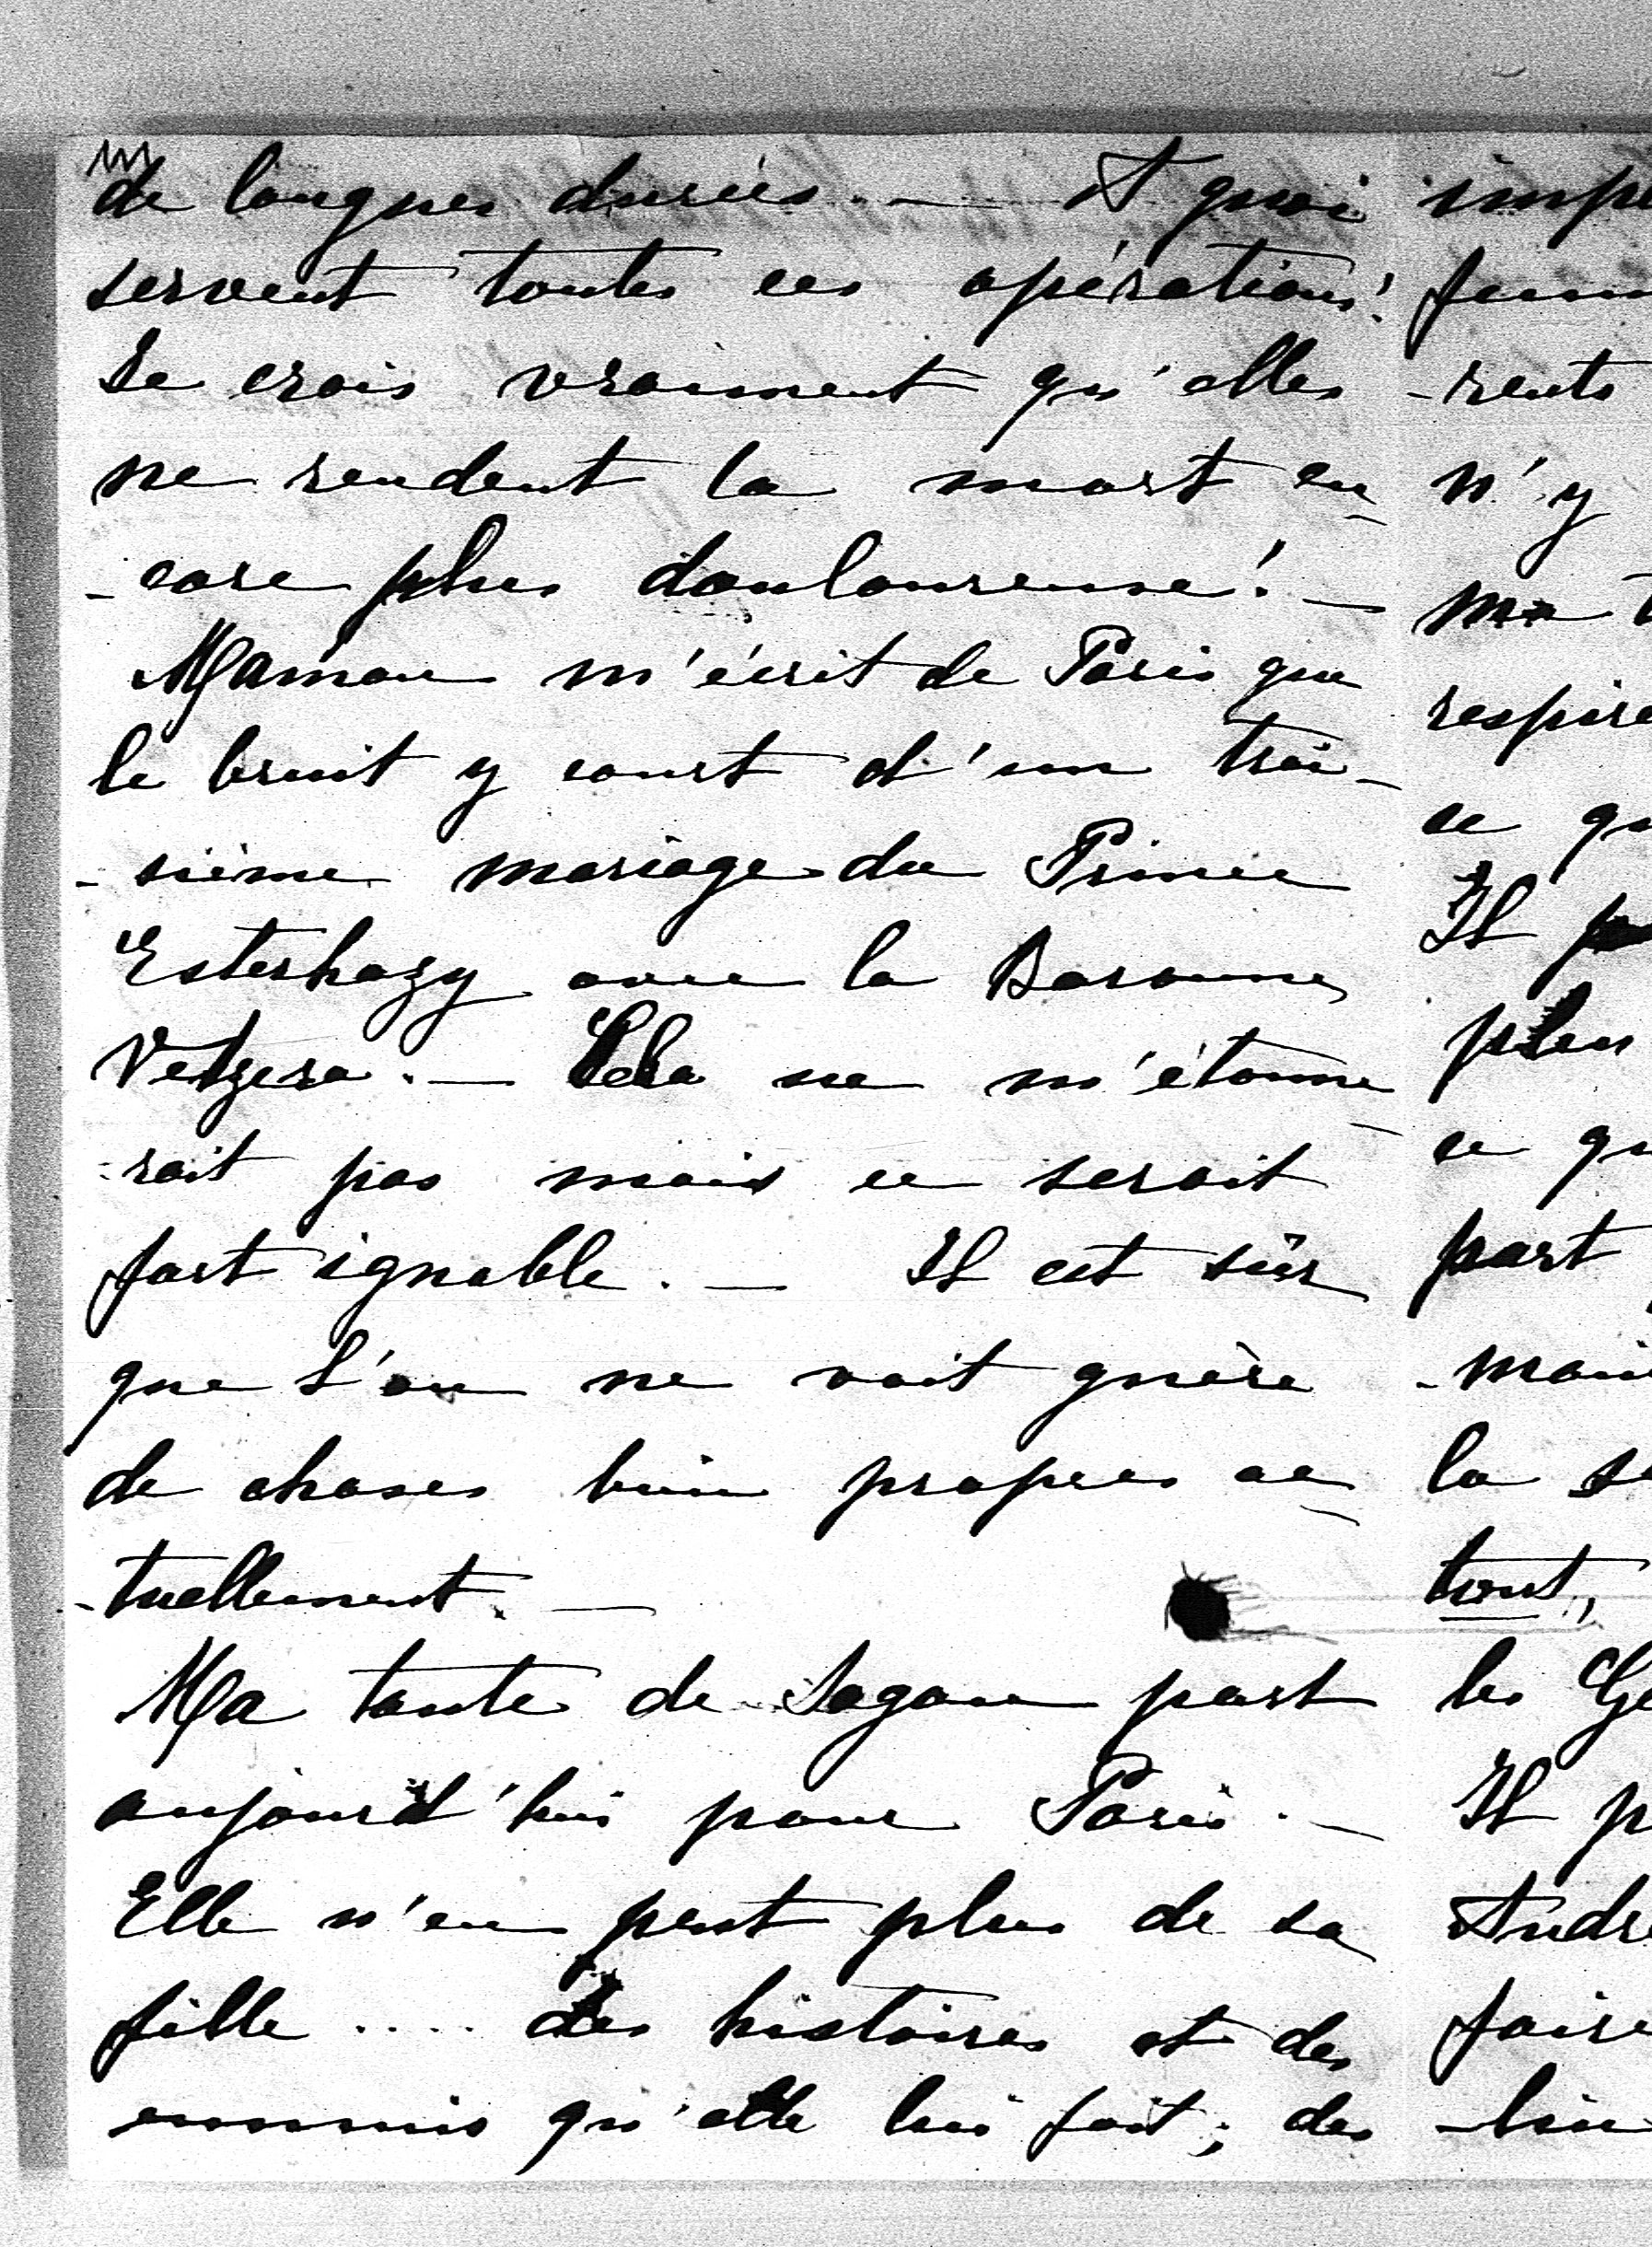 de longues durées. — A quoi
servent toutes ces opérations!
Je crois vraiment qu'elles
ne rendent la mort en-
-core plus douloureuse! —
Maman m'écrit de Paris que
le bruit y court d'un troi-
-sième mariage du Prince
Esterhazy avec la Baronne
Vetzera. — Cela ne m'étonne-
-rait pas mais ce serait
fort ignoble. — Il est sûr
que l'on ne voit guère
de choses bien propres ac-
-tuellement. —
Ma tante de Sagan part
aujourd'hui pour Paris. —
Elle n'en peut plus de sa
fille .... des histoires et des
ennuis qu'elle lui fait; des
imp
femm
-rents
n'y
ma t
respire
ce qu
Il
plus
ce qu
part
-main
la se
tout,
les Ge
Il p
André
faire
-bien